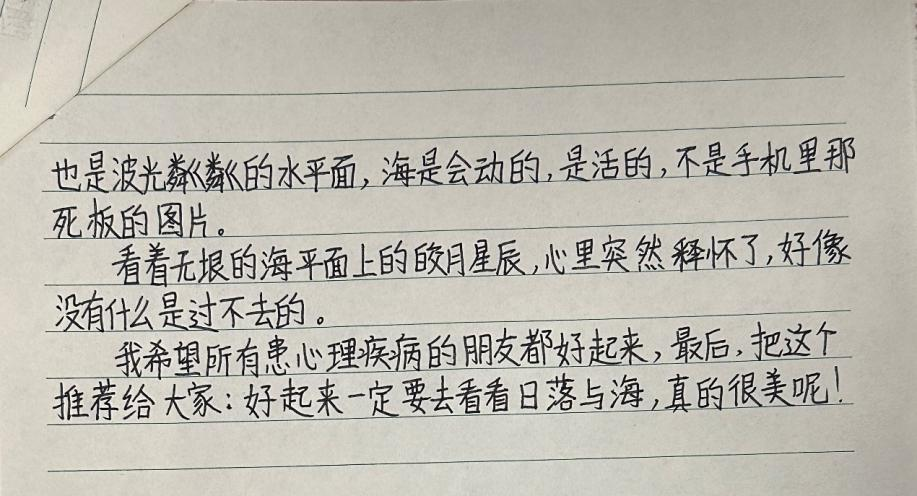 也是波光粼粼的水平面，海是会动的，是活的，不是手机里那
死板的图片。
看着无垠的海平面上的皎月星辰，心里突然释怀了，好像
没有什么是过不去的。
我希望所有患心理疾病的朋友都好起来，最后，把这个
推荐给大家：好起来一定要去看看日落与海，真的很美呢！